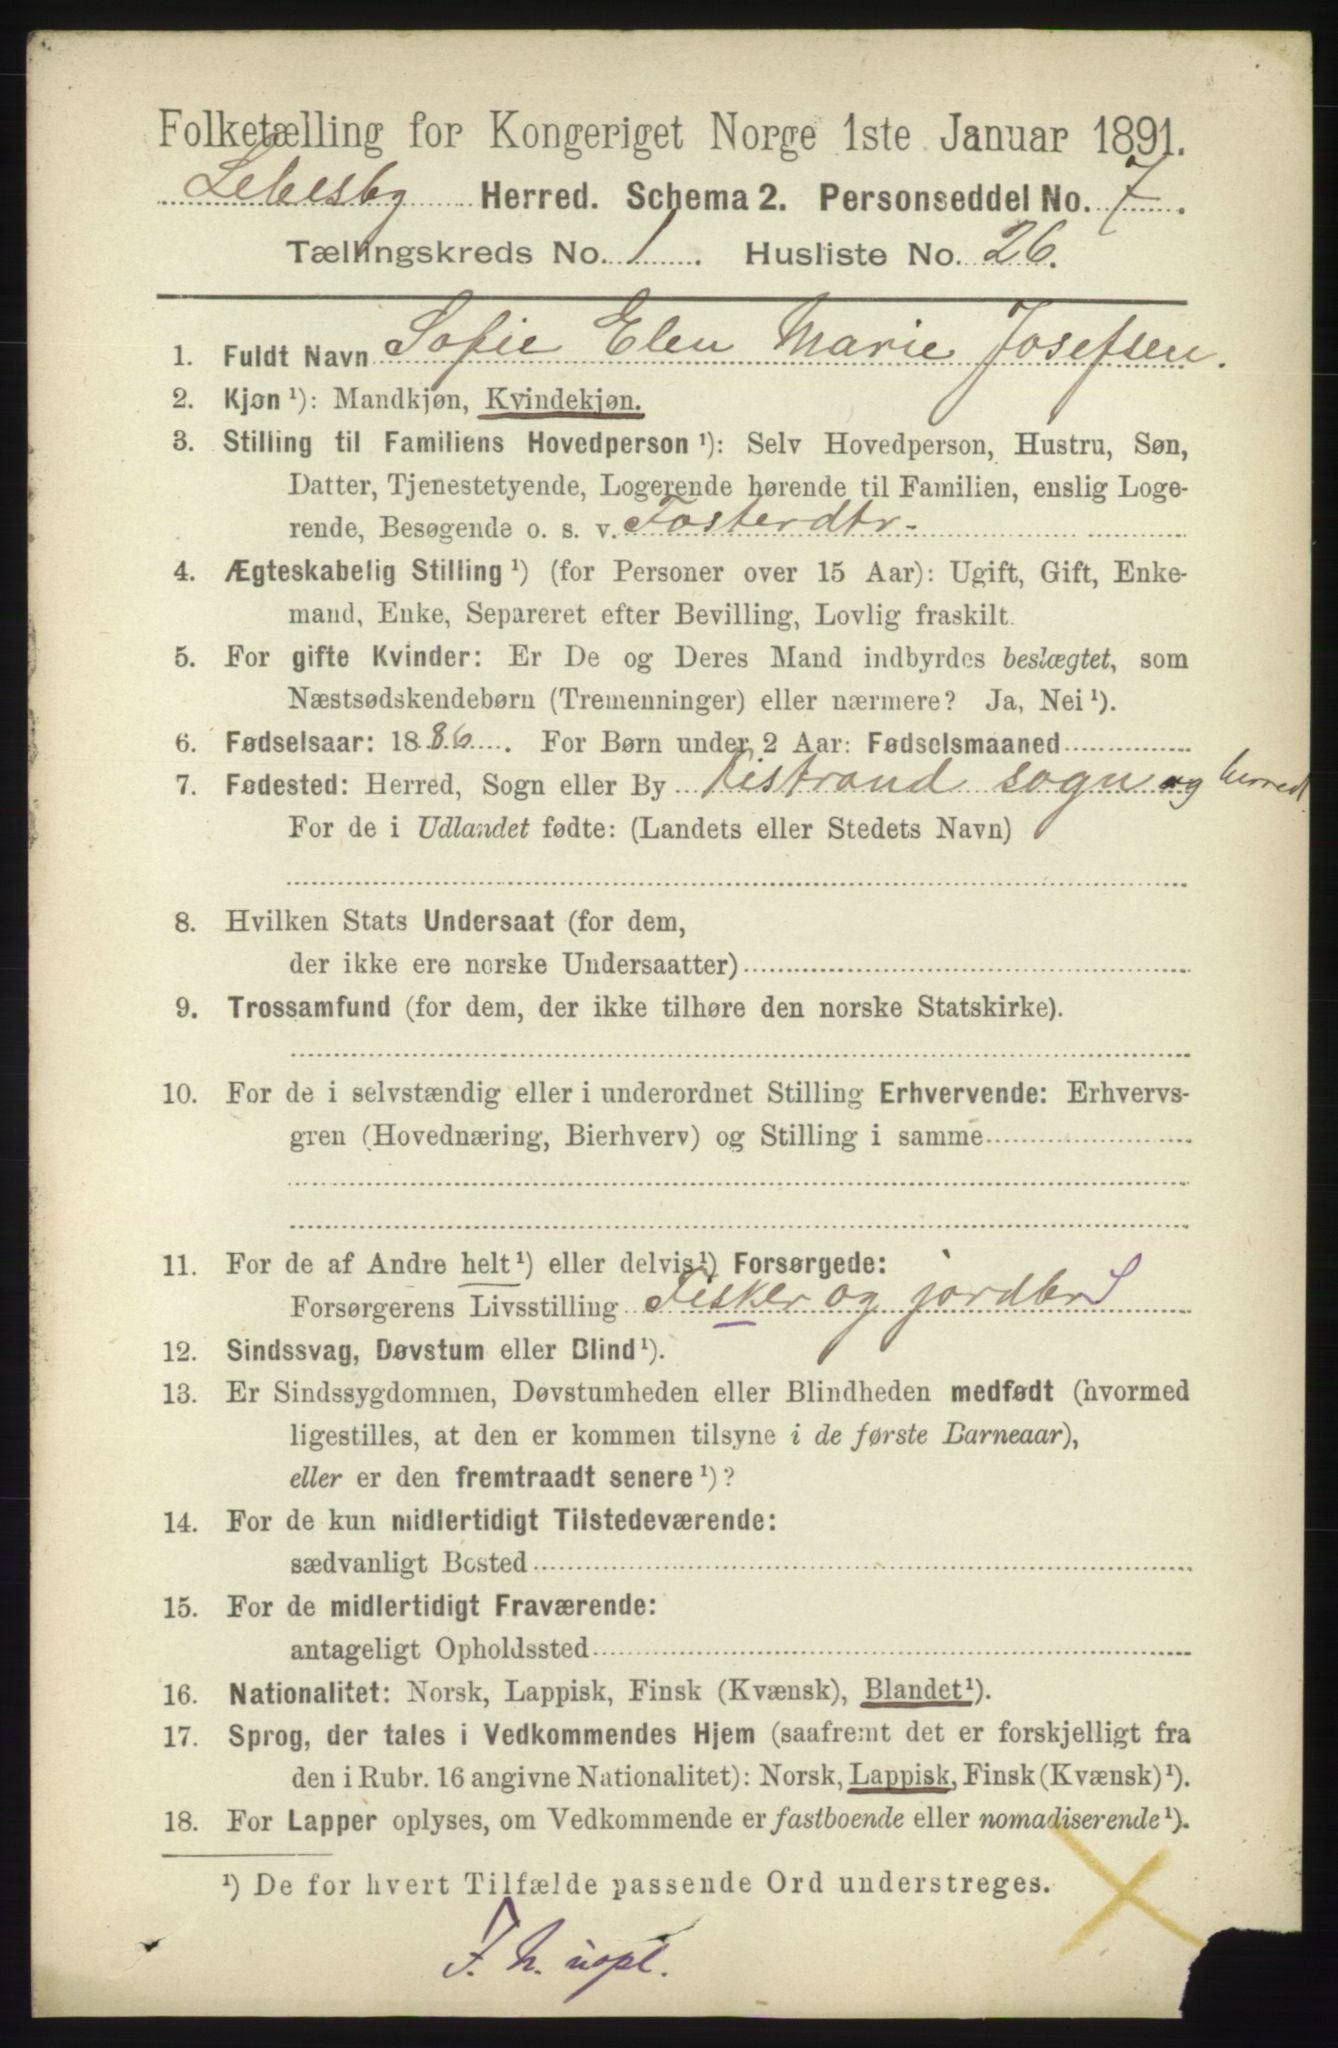 Folketælling for Kongeriget Norge 1ste Januar 1891.
Lebesby Herred. Schema 2. Personseddel No. 7.
Tællingskreds No. 1. Husliste No. 26.
1. Fuldt Navn Sofie Elen Marie Josefsen.
2. Kjøn ¹): Mandkjøn, Kvindekjøn.
3. Stilling til Familiens Hovedperson ¹): Selv Hovedperson, Hustru, Søn,
Datter, Tjenestetyende, Logerende hørende til Familien, enslig Loge-
rende, Besøgende o. s. v. Fosterdtr.
4. Ægteskabelig Stilling ¹) (for Personer over 15 Aar): Ugift, Gift, Enke-
mand, Enke, Separeret efter Bevilling, Lovlig fraskilt.
5. For gifte Kvinder: Er De og Deres Mand indbyrdes beslægtet, som
Næstsødskendebørn (Tremenninger) eller nærmere? Ja, Nei ¹).
6. Fødselsaar: 1886. For Børn under 2 Aar: Fødselsmaaned
7. Fødested: Herred, Sogn eller By Kistrand sogn og herred
For de i Udlandet fødte: (Landets eller Stedets Navn)
8. Hvilken Stats Undersaat (for dem,
der ikke ere norske Undersaatter)
9. Trossamfund (for dem, der ikke tilhøre den norske Statskirke).
10. For de i selvstændig eller i underordnet Stilling Erhvervende: Erhvervs-
gren (Hovednæring, Bierhverv) og Stilling i samme
11. For de af Andre helt ¹) eller delvis ¹) Forsørgede:
Forsørgerens Livsstilling Fisker og jordbr S
12. Sindssvag, Døvstum eller Blind ¹).
13. Er Sindssygdommen, Døvstumheden eller Blindheden medfødt (hvormed
ligestilles, at den er kommen tilsyne i de første Barneaar),
eller er den fremtraadt senere ¹)?
14. For de kun midlertidigt Tilstedeværende:
sædvanligt Bosted
15. For de midlertidigt Fraværende:
antageligt Opholdssted
16. Nationalitet: Norsk, Lappisk, Finsk (Kvænsk), Blandet ¹).
17. Sprog, der tales i Vedkommendes Hjem (saafremt det er forskjelligt fra
den i Rubr. 16 angivne Nationalitet): Norsk, Lappisk, Finsk (Kvænsk) ¹).
18. For Lapper oplyses, om Vedkommende er fastboende eller nomadiserende ¹).
¹) De for hvert Tilfælde passende Ord understreges.
F. N. uopl.